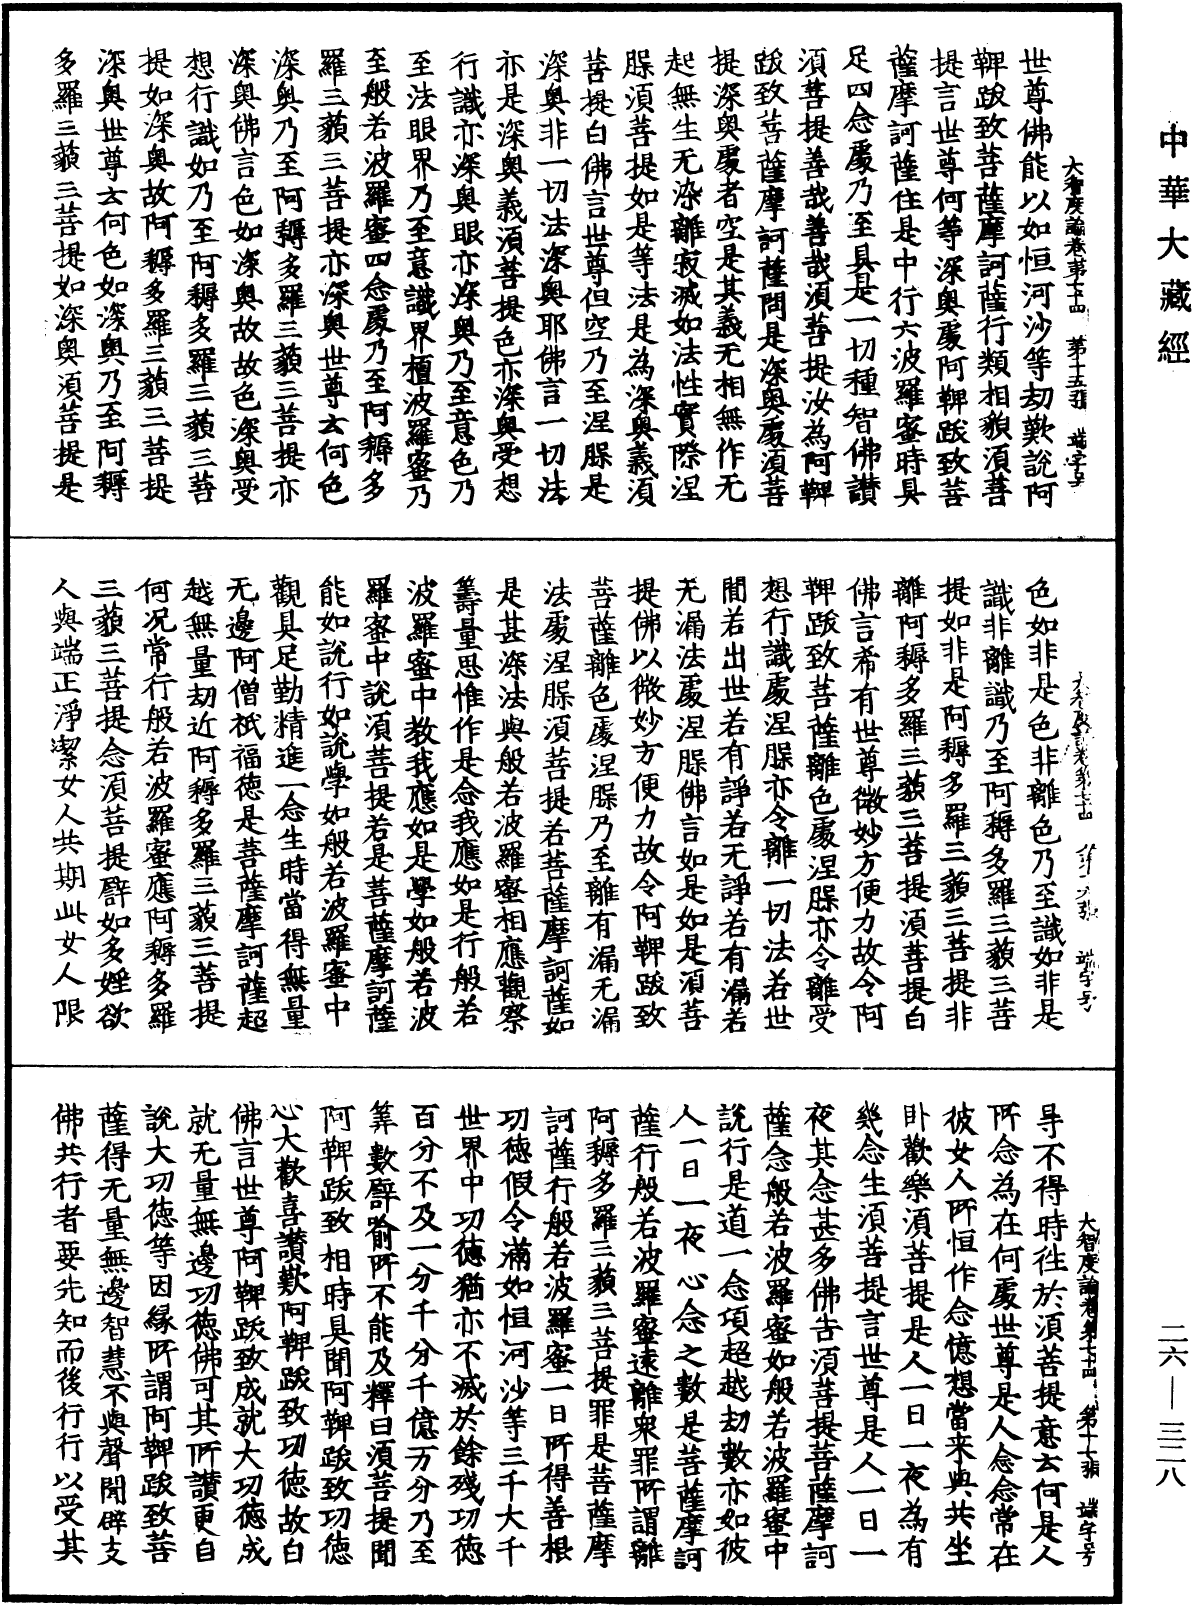 中華大藏經
大智度論卷第七十四　第十五張　端字号
世尊佛能以如恒河沙等劫歎說阿
鞞跋致菩薩摩訶薩行類相貌須菩
提言世尊何等深奧處阿鞞跋致菩
薩摩訶薩住是中行六波羅蜜時具
足四念處乃至具足一切種智佛讃
須菩提善哉善哉須菩提汝為阿鞞
跋致菩薩摩訶薩問是深奧處須菩
提深奧處者空是其義无相無作无
起無生无染離寂滅如法性實際涅
脲須菩提如是等法是為深奧義須
菩提白佛言世尊但空乃至涅脲是
深奧非一切法深奧耶佛言一切法
亦是深奧義須菩提色亦深奧受想
行識亦深奧眼亦深奧乃至意色乃
至法眼界乃至意識界檀波羅蜜乃
至般若波羅蜜四念處乃至阿耨多
羅三藐三菩提亦深奧世尊云何色
深奧乃至阿耨多羅三藐三菩提亦
深奧佛言色如深奧故故色深奧受
想行識如乃至阿耨多羅三藐三菩
提如深奧故阿耨多羅三藐三菩提
深奧世尊云何色如深奧乃至阿耨
多羅三藐三菩提如深奧須菩提是
第十六張　端字号
色如非是色非離色乃至識如非是
識非離識乃至阿耨多羅三藐三菩
提如非是阿耨多羅三藐三菩提非
離阿耨多羅三藐三菩提須菩提白
佛言希有世尊微妙方便力故令阿
鞞跋致菩薩離色處涅脲亦令離受
想行識處涅脲亦令離一切法若世
間若出世若有諍若无諍若有漏若
无漏法處涅脲佛言如是如是須菩
提佛以微妙方便力故令阿鞞跋致
菩薩離色處涅脲乃至離有漏无漏
法處涅脲須菩提若菩薩摩訶薩如
是甚深法與般若波羅蜜相應觀察
籌量思惟作是念我應如是行般若
波羅蜜中教我應如是學如般若波
羅蜜中說須菩提若是菩薩摩訶薩
能如說行如說學如般若波羅蜜中
觀具足勤精進一念生時當得無量
无邊阿僧祇福德是菩薩摩訶薩超
越無量劫近阿耨多羅三藐三菩提
何況常行般若波羅蜜應阿耨多羅
三藐三菩提念須菩提譬如多婬欲
人與端正淨潔女人共期此女人限
大智度論卷第七十四　第十七張　端字号
㝵不得時往於須菩提意云何是人
所念為在何處世尊是人念念常在
彼女人所恒作念憶想當来與共坐
卧歡樂須菩提是人一日一夜為有
幾念生須菩提言世尊是人一日一
夜其念甚多佛告須菩提菩薩摩訶
薩念般若波羅蜜如般若波羅蜜中
說行是道一念項超越劫數亦如彼
人一日一夜心念之數是菩薩摩訶
薩行般若波羅蜜遠離衆罪所謂離
阿耨多羅三藐三菩提罪是菩薩摩
訶薩行般若波羅蜜一日所得善根
功徳假令滿如恒河沙等三千大千
世界中功徳猶亦不減於餘殘功徳
百分不及一分千分千億万分乃至
筭數譬喻所不能及釋曰須菩提聞
阿鞞跋致相時具聞阿鞞跋致功徳
心大歡喜讃歎阿鞞跋致功徳故白
佛言世尊阿鞞跋致成就大功徳成
就无量無邊功徳佛可其所讃更自
說大功徳等因縁所謂阿鞞跋致菩
薩得无量無邊智慧不與聲聞辟支
佛共行者要先知而後行行以受其
二六—三二八